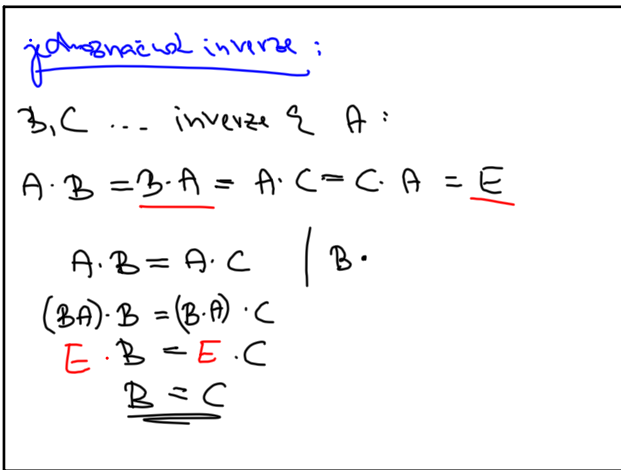 jednoznačnost inverze :
B, C ... inverze k A :
A · B = B · A = A · C = C · A = E
A · B = A · C | B ·
(BA) · B = (B·A) · C
E · B = E · C
B = C